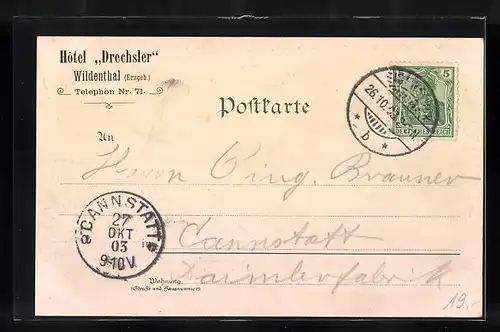 Hôtel „Drechsler"
Wildenthal (Erzgeb.)
Telephon Nr. 71.
5
DEUTSCHES REICH
26.10.
* b *
Postkarte
An
Herrn Ing. Brauner
CANNSTATT
27
OKT
03
9-10V.
Cannstatt
Daimlerfabrik
Wohnung
(Straße und Hausnummer)
19.-